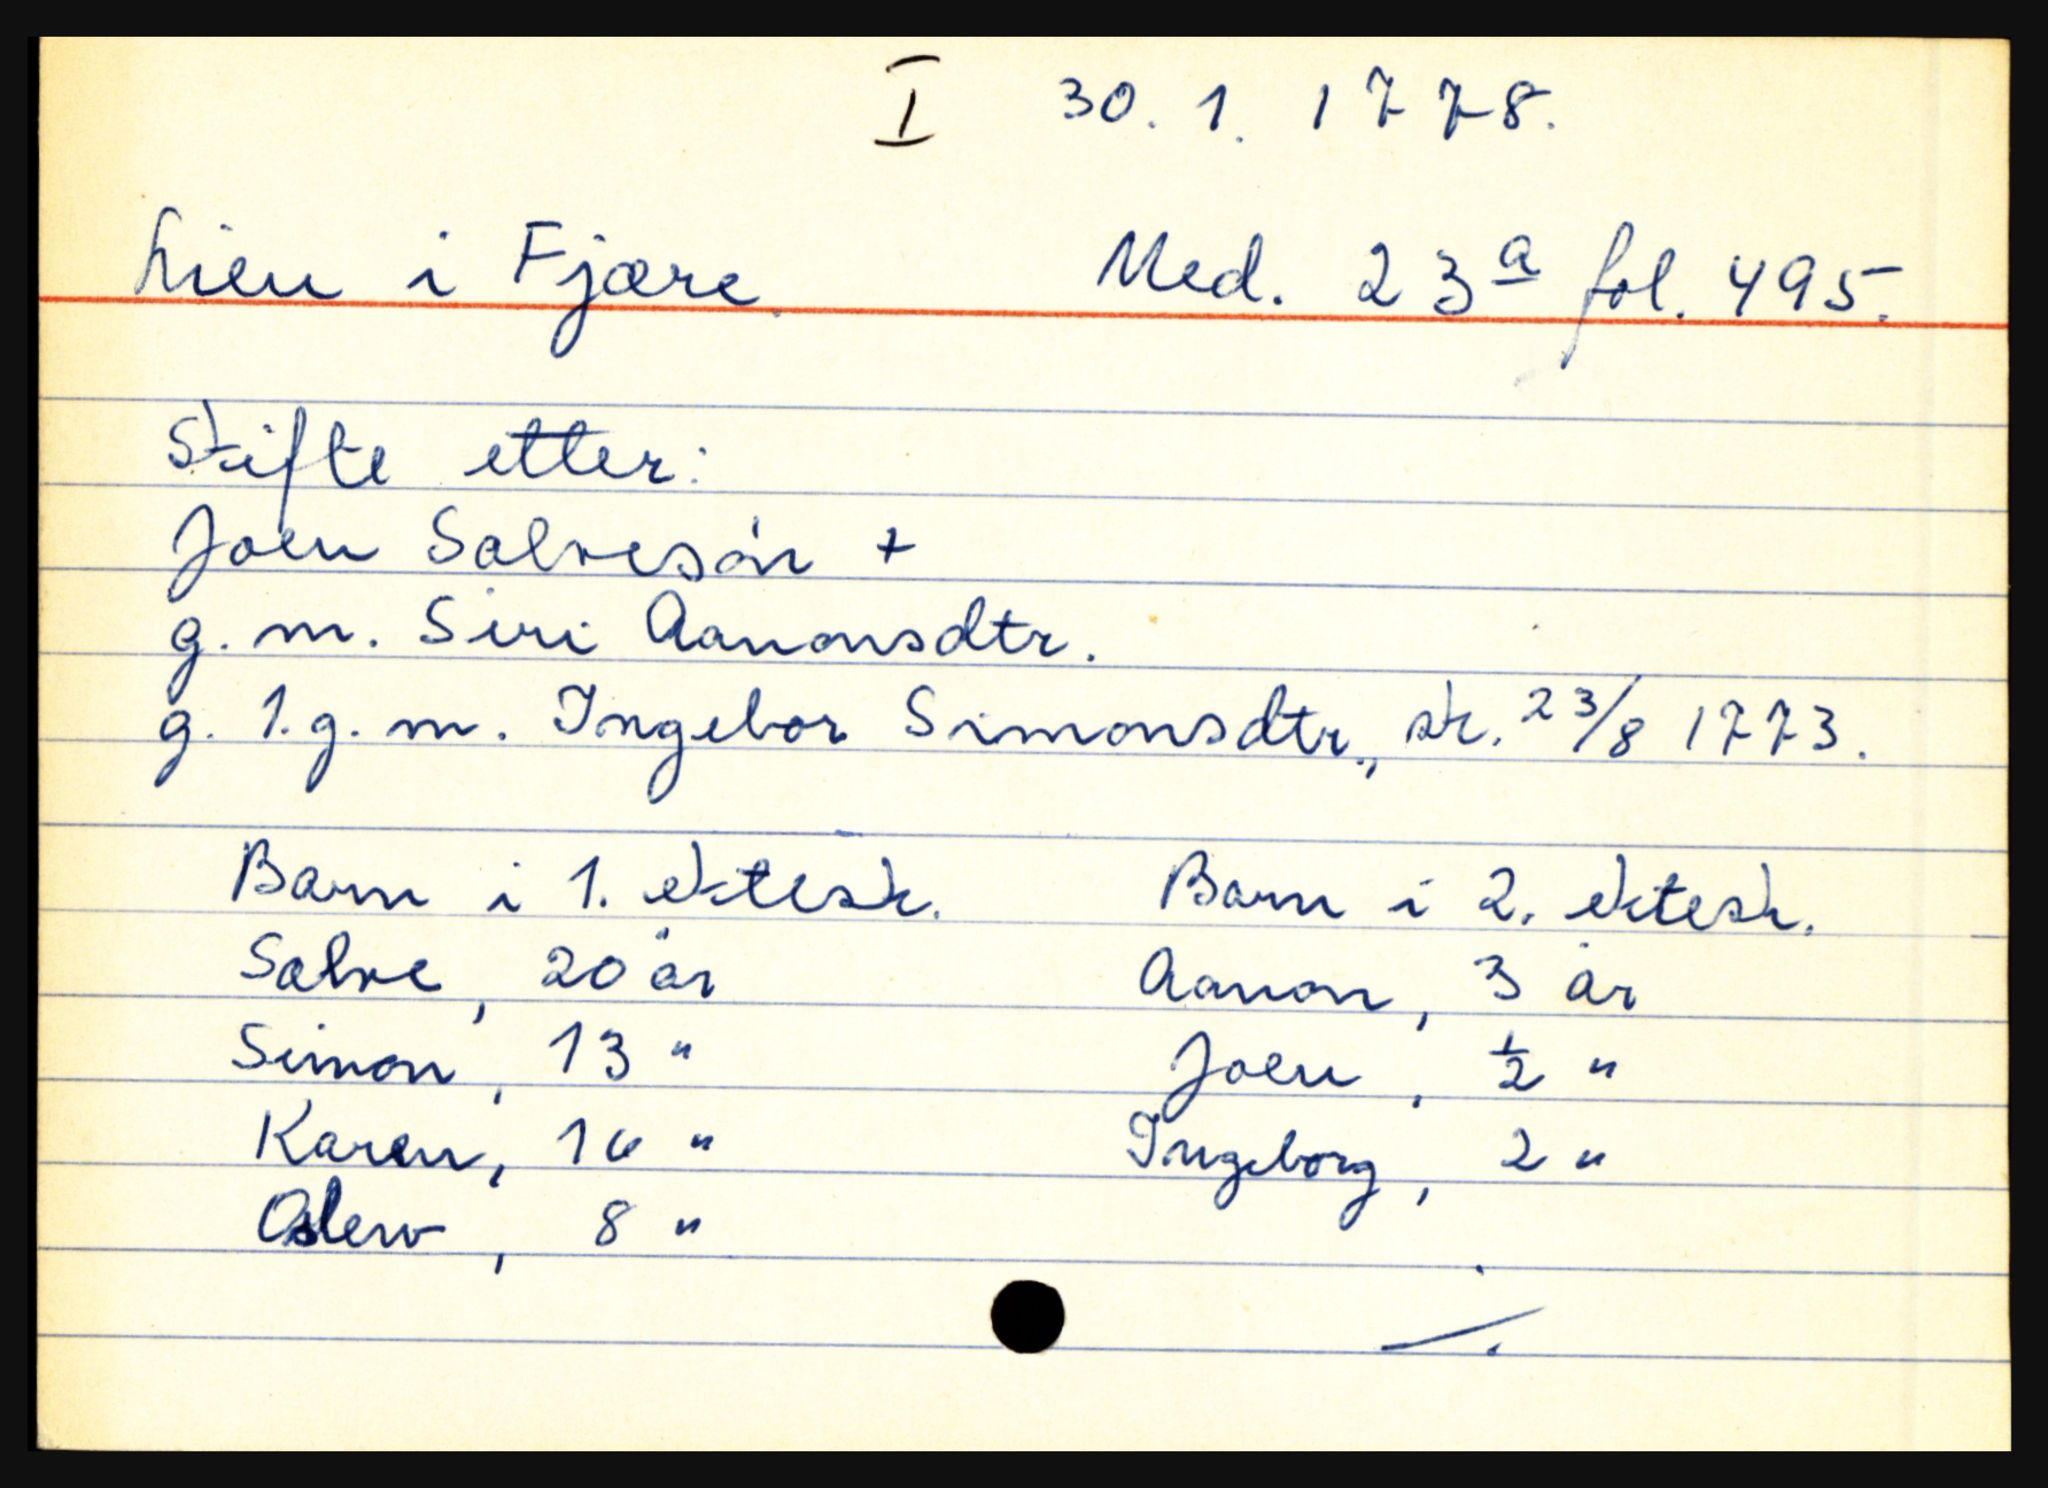 I 30. 1. 1778.
Lien i Fjære. Med. 23a fol. 495.
Skifte etter:
Joen Salvesøn +
g. m. Siri Aanonsdtr.
g. 1. g. m. Ingebor Simonsdtr., sk. 23/8 1773.
Barn i 1. ektesk. Barn i 2. ektesk.
Salve, 20 år Aanon, 3 år
Simon, 13 " Joen, ½ "
Karen, 16 " Ingeborg, 2 "
8 "